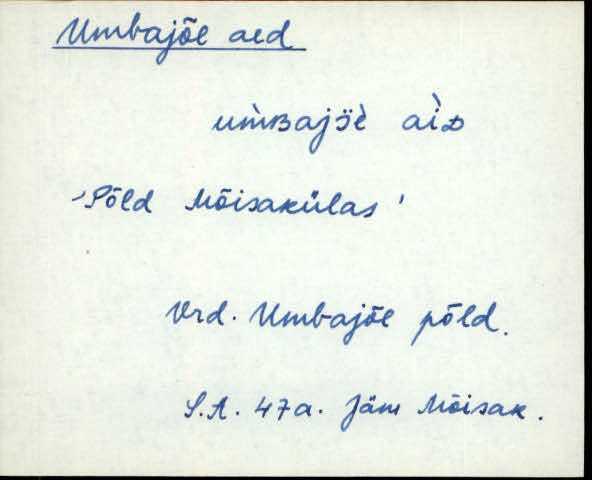 Umbajõe aed
um̀ʙajɜ̈è aìᴅ
'Põld Mõisakülas'
Vrd. Umbajõe põld.
S.A. 47a. Jäm Mõisak.